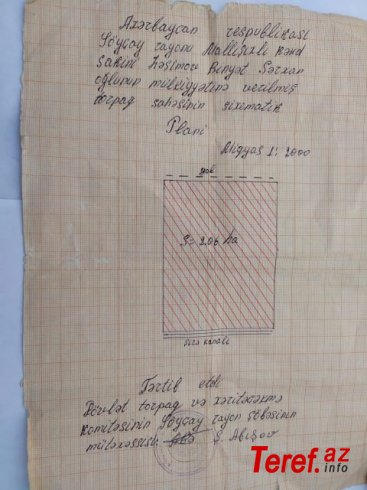 Azərbaycan respublikası
Göyçay rayonu Mallışıxlı kənd
sakini Həşimov Bünyət Sərxan
oğlunun mülkiyyətinə verilmiş
torpaq sahəsinin sixematik
Planı
Miqyas 1: 2000
yol
S= 2.06 ha
Arx kanalı
Tərtib etdi
Dövlət torpaq və xəritəçəkmə
komitəsinin Göyçay rayon şöbəsinin
mütəxəssisi: Ş. Abışov
Teref.az
.info